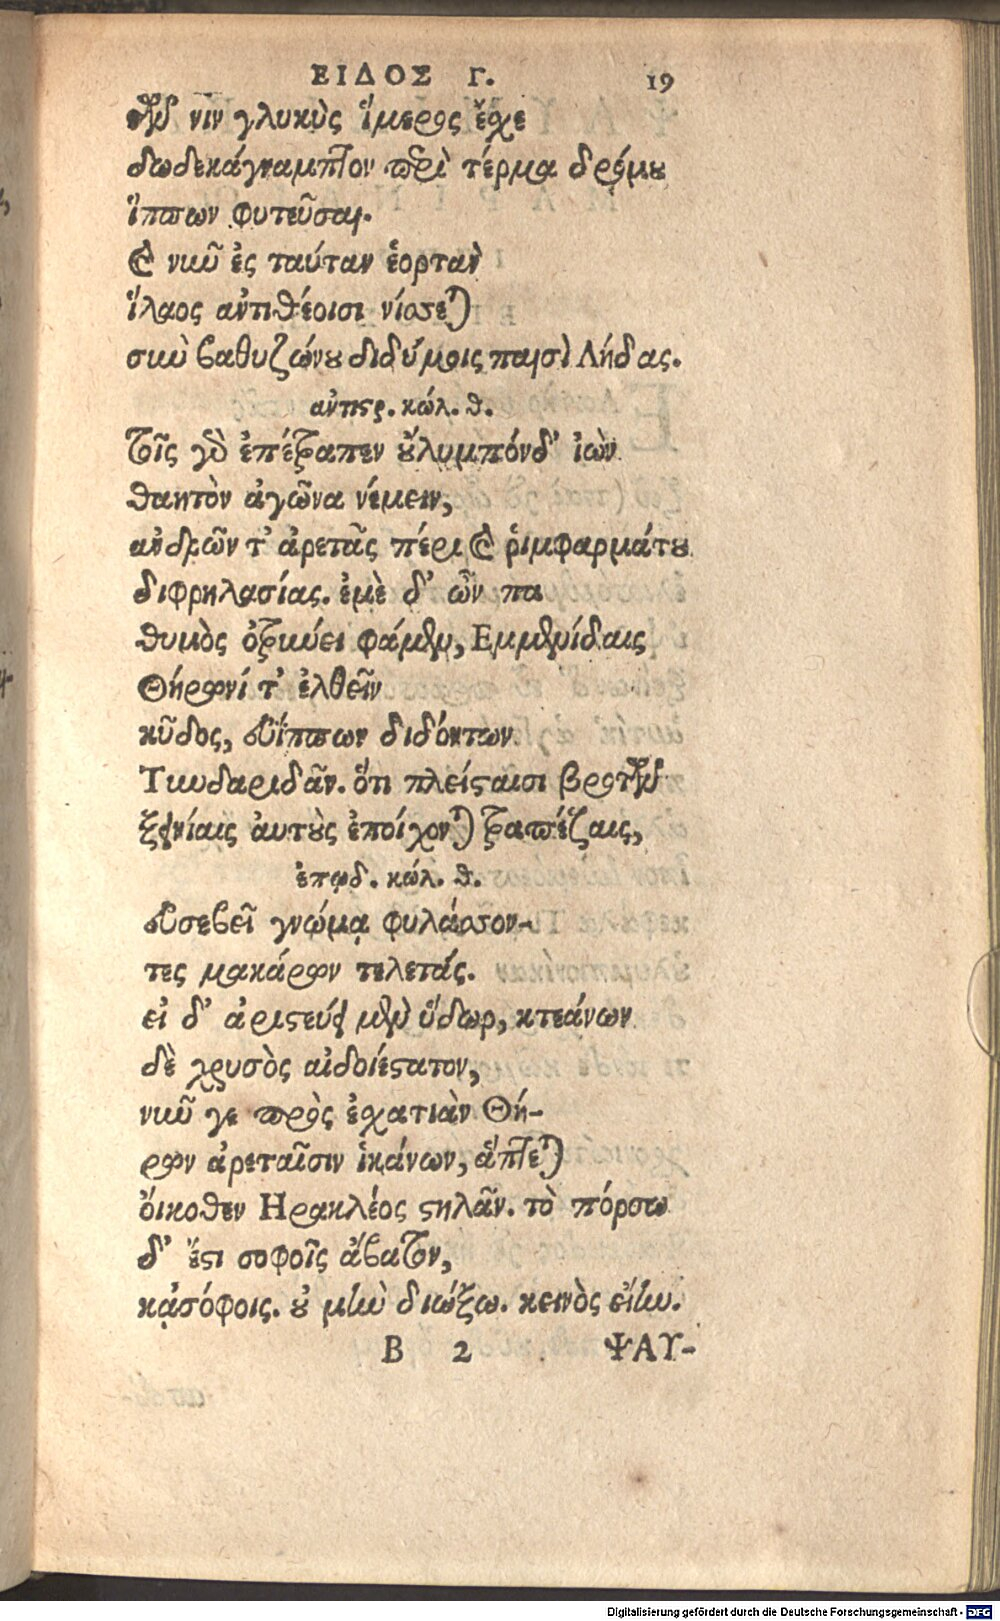 ΕΙΔΟΣ Γ. 19
τῶν νιν γλυκὺς ἵμερος ἔχε
δωδεκάγναμπτον περὶ τέρμα δρόμου
ἵππων φυτεῦσαι.
καὶ νῦν ἐς ταύταν ἑορτὰν
ἵλαος ἀντιθέοισι νίσσεται
σὺν βαθυζώνου διδύμοις παισὶ Λήδας.
ἀντιστρ. κώλ. θ.
Τοῖς γὸ ἐπέτραπεν οὔλυμπόνδ' ἰὼν
θαητὸν ἀγῶνα νέμειν,
ἀνδρῶν τ' ἀρετᾶς πέρι καὶ ῥιμφαρμάτου
διφρηλασίας. ἐμὲ δ' ὦν πα
θυμὸς ὀτρύνει φάμεν, Εμμενίδαις
Θήρωνί τ' ἐλθεῖν
κῦδος, εὐίππων διδόντων
Τυνδαριδᾶν. ὅτι πλείσταισι βροτῶν
ξεινίαις ἀυτοὺς ἐποίχονται τραπέζαις,
ἐπῳδ. κώλ. θ.
εὐσεβεῖ γνώμᾳ φυλάσσον-
τες μακάρων τελετάς.
εἰ δ' ἀριστεύει μὲν ὕδωρ, κτεάνων
δὲ χρυσὸς αἰδοιέστατον,
νῦν γε πρὸς ἐσχατιὰν Θή-
ρων ἀρεταῖσιν ἱκάνων, ἅπτεται
ὄικοθεν Ηρακλέος στηλᾶν. τὸ πόρσω
δ' ἔστι σοφοῖς ἄβατον,
κᾀσόφοις. οὐ μὴν διώξω. κεινὸς εἴην.
B 2 ΨΑΥ-
Digitalisierung gefördert durch die Deutsche Forschungsgemeinschaft - DFG